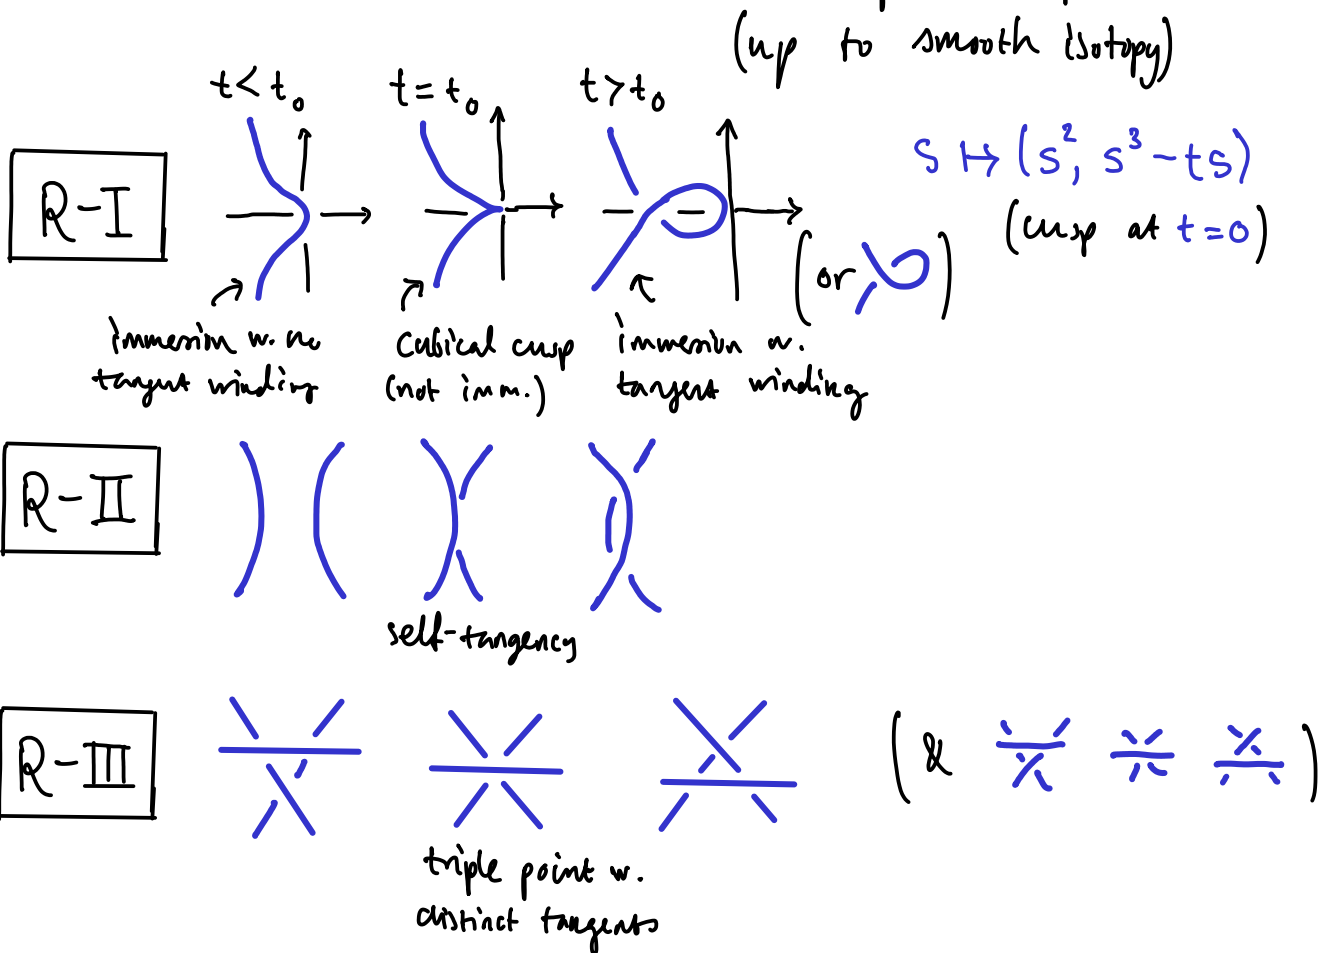 (up to smooth isotopy)
t < t₀
t = t₀
t > t₀
s ↦ (s², s³ - ts)
R-I
(cusp at t = 0)
(or, )
immersion w. no tangent winding
cubical cusp (not imm.)
immersion w. tangent winding
R-II
self-tangency
R-III
(& )
triple point w.
distinct tangents